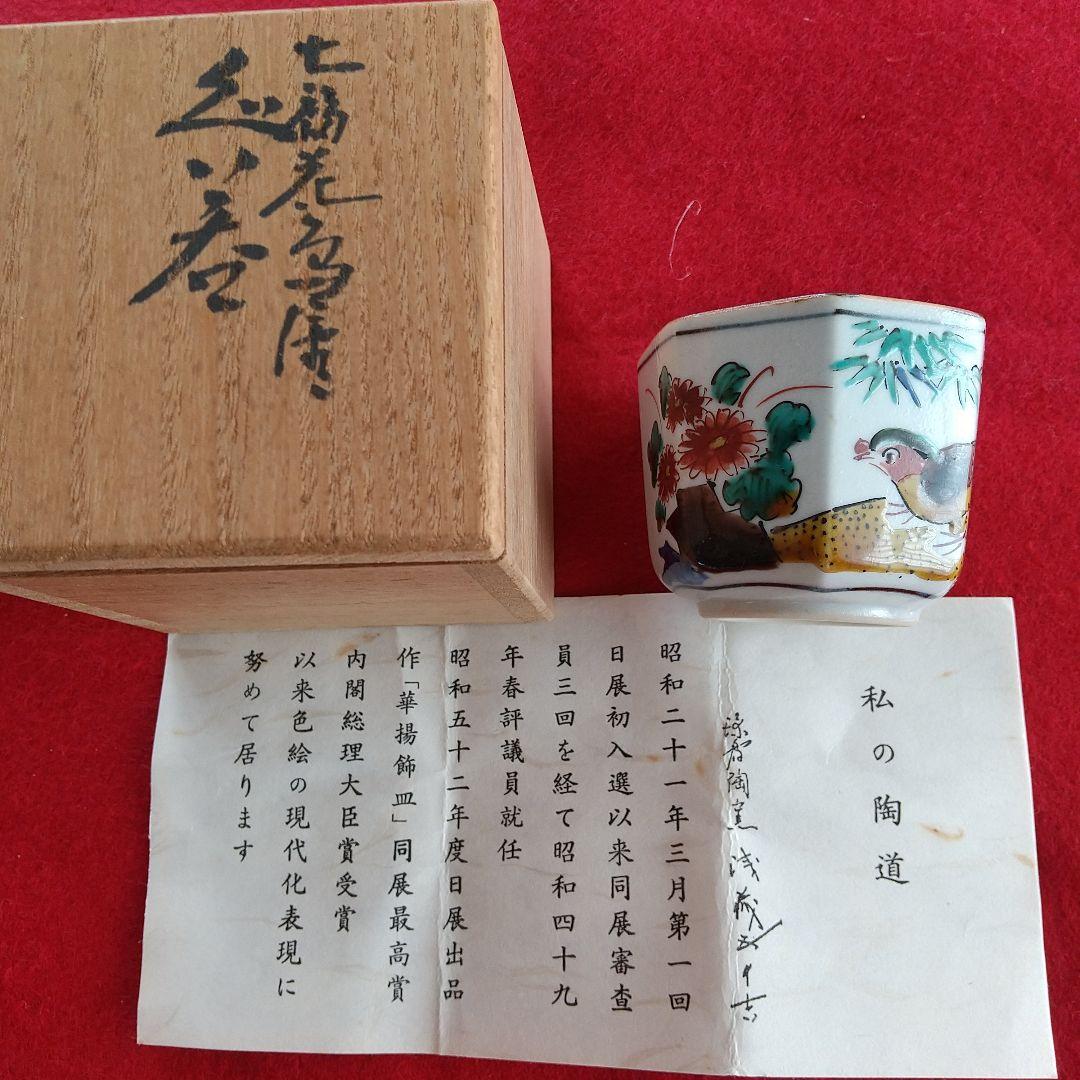 ぐい呑
私の陶道
陶窯 浅蔵五十吉
昭和二十一年三月第一回
日展初入選以来同展審査
員三回を経て昭和四十九
年春評議員就任
昭和五十二年度日展出品
作「華揚飾皿」同展最高賞
内閣総理大臣賞受賞
以来色絵の現代化表現に
努めて居ります